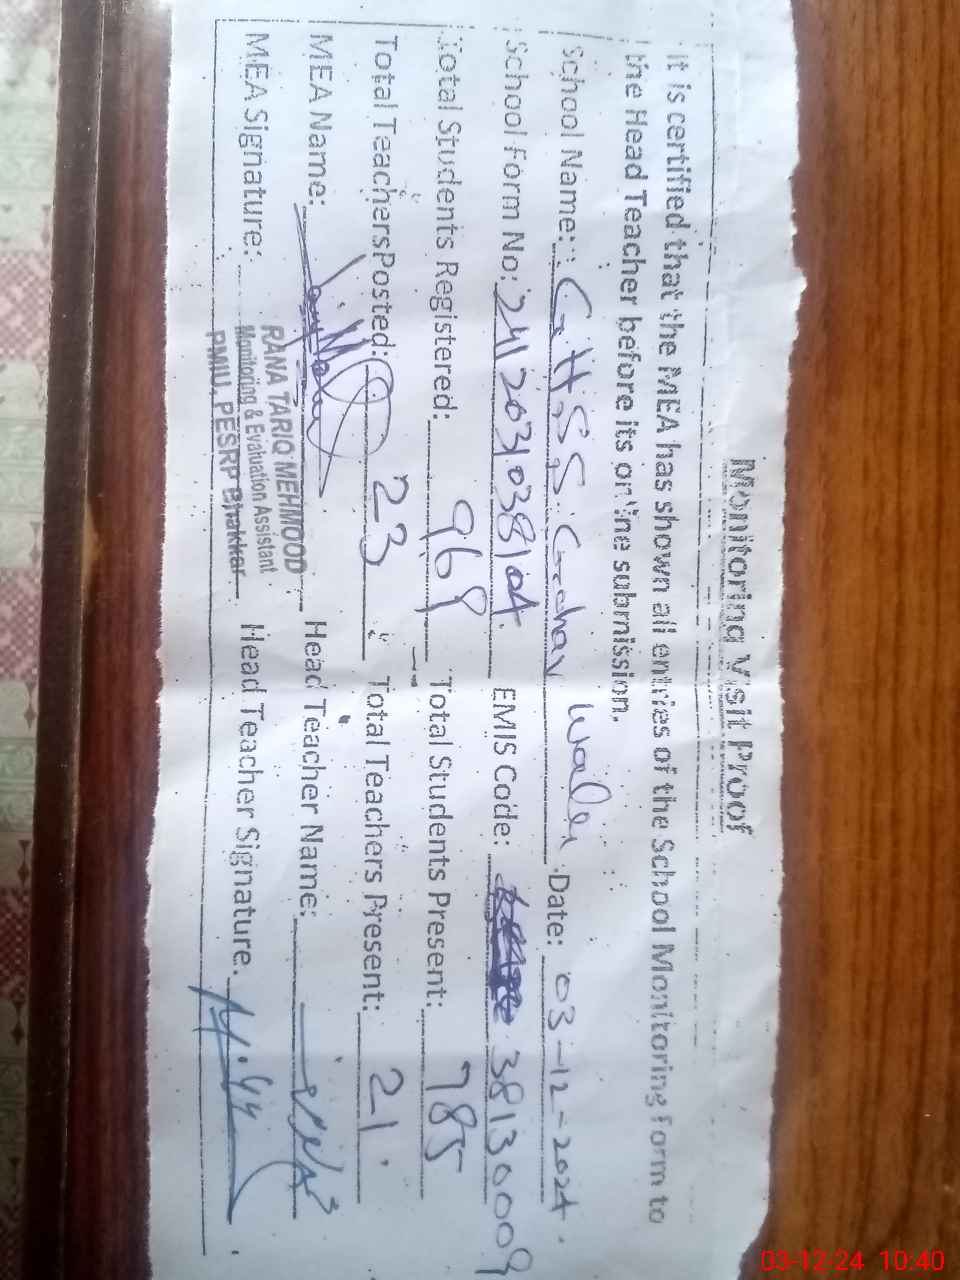 Monitoring Visit Proof
It is certified that the MEA has shown all entries of the School Monitoring Form to
the Head Teacher before its online submission.
School Name: G.H.S.S. Gohar Wala Date: 03-12-2024.
School Form No: 241203103810A. EMIS Code: 38130009
Total Students Registered: 969 Total Students Present: 785
Total Teachers Posted: 23 Total Teachers Present: 21.
MEA Name: Head Teacher Name:
MEA Signature: Head Teacher Signature.
RANA TARIQ MEHMOOD
Monitoring & Evaluation Assistant
PMIU, PESRP Bhakkar
03-12-24 10:40